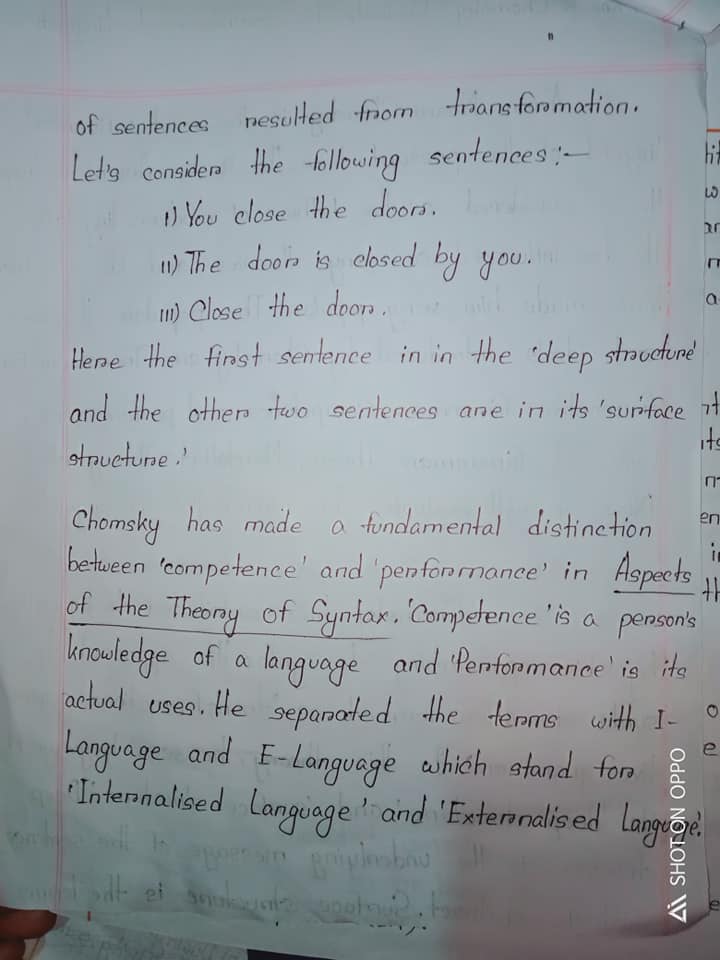 of sentences resulted from transformation.
Let's consider the following sentences:-
I) You close the door.
II) The door is closed by you.
III) Close the door.
Here the first sentence in in the 'deep structure'
and the other two sentences are in its 'surface
structure.'
Chomsky has made a fundamental distinction
between 'competence' and 'performance' in Aspects
of the Theory of Syntax. 'Competence' is a person's
knowledge of a language and 'Performance' is its
actual uses. He separated the terms with I-
Language and E-Language which stand for
'Internalised Language' and 'Externalised Language.'
SHOT ON OPPO